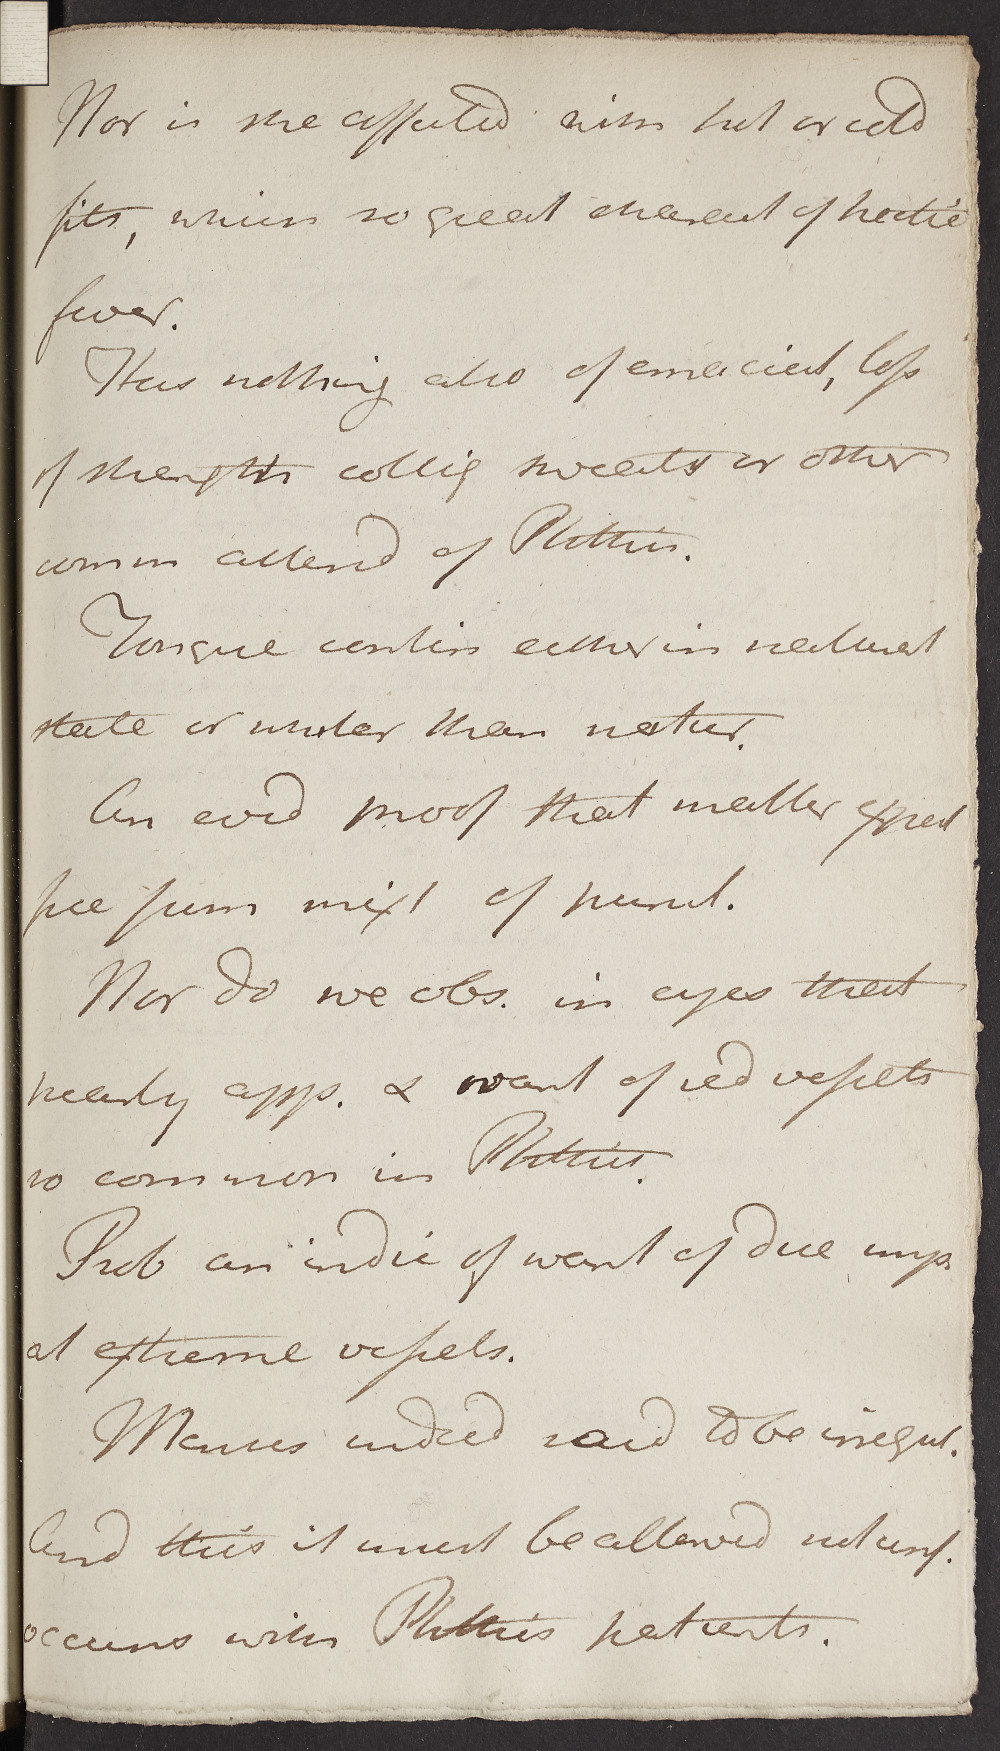 Nor is she affected with hot or cold
fits, which so great charact of hectic
fever.
Has nothing also of emaciat, loss
of strength colliq sweats or other
comm attend of Phthisis.
Tongue contin either in natural
state or whiter than natur.
An evid proof that matter expect
free from mixt of purul.
Nor do we obs. in eyes that
pearly app. & want of red vessels
so common in Phthisis.
Prob an indic of want of due imp
at extreme vessels.
Menses indeed said to be irregul.
And this it must be allowed not unf.
occurs with Phthis patients.